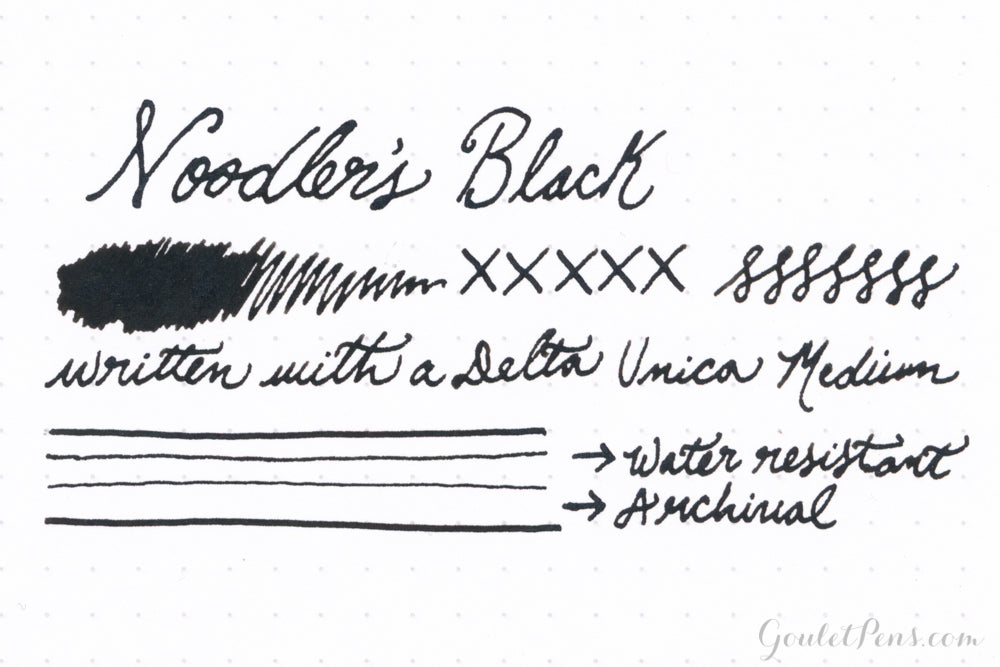 Noodler's Black
XXXXX SSSSSSS
written with a Delta Unica Medium
→ Water resistant
→ Archival
GouletPens.com